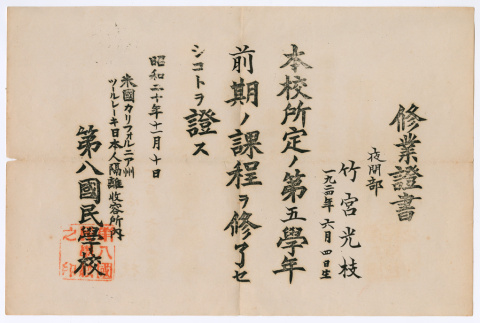 修業證書
夜間部
竹宮光枝
一九二四年六月四日生
本校所定ノ第五學年
前期ノ課程ヲ修了セ
シコトヲ證ス
昭和二十年十一月十日
米國カリフォルニア州
ツールレーキ日本人隔離收容所內
第八國民學校